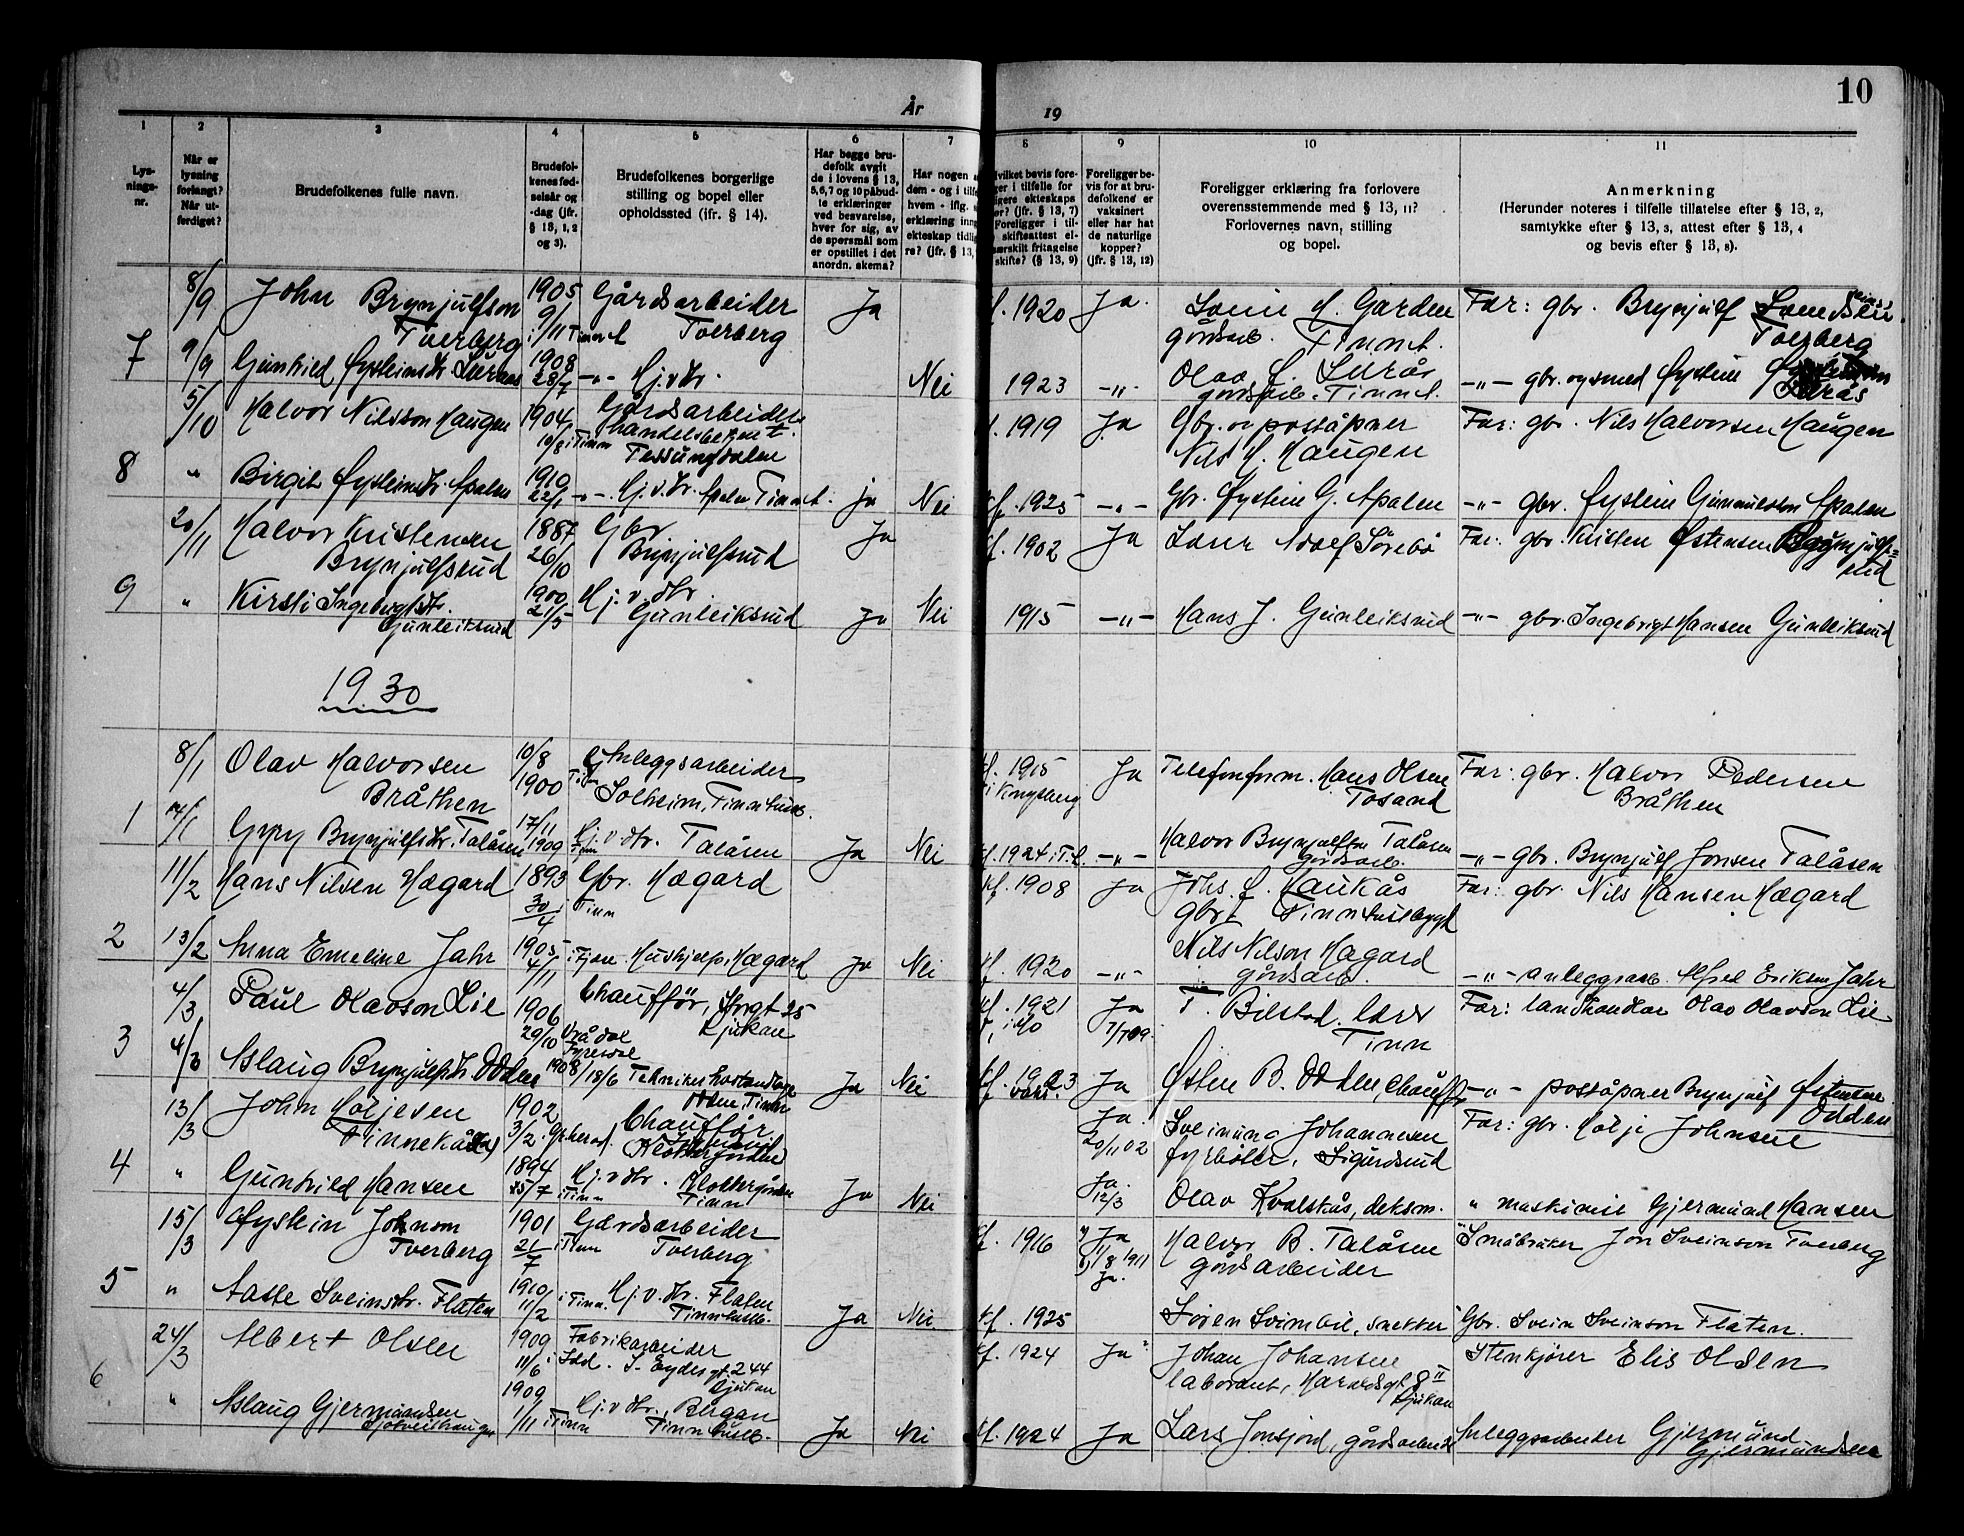 10
År 19
1 2 3 4 5 6 7 8 9 10 11
Lys-
nings-
nr.
Når er
lysning
forlangt?
Når ut-
ferdiget?
Brudefolkenes fulle navn.
Brudefol-
kenes fød-
selsår og
-dag (jfr.
§ 13, 1, 2
og 3).
Brudefolkenes borgerlige
stilling og bopel eller
opholdssted (jfr. § 14).
Har begge bru-
defolk avgit
de i lovens § 13,
5, 6, 7 og 10 påbud-
te erklæringer
ved besvarelse,
hver for sig, av
de spørsmål som
er opstillet i det
anordn. skema?
Har nogen a
dem - og i tilfe
hvem - iflg.
erklæring inng
ekteskap tidlig
re? (jfr. § 13,
Hvilket bevis fore-
ger i tilfelle for
igere ekteskaps
er? (jfr. § 13, 7)
Foreligger i til-
skifteattest el-
særskilt fritagelse
skifte? (§ 13, 9)
Foreligger be-
vis for at bru-
defolkene er
vaksinert
eller har hat
de naturlige
kopper?
(jfr. § 13, 12)
Foreligger erklæring fra forlovere
overensstemmende med § 13, 11?
Forlovernes navn, stilling
og bopel.
Anmerkning
(Herunder noteres i tilfelle tillatelse efter § 13, 2,
samtykke efter § 13, 3, attest efter § 13, 4
og bevis efter § 13, 8).
8/9 John Brynjulfson Tverberg 1905 9/11 i Tinn Gårdsarbeider Tverberg Ja kf. 1920 Ja. H. Garden gårdsarb. Tinn Far: gbr. Brynjulf Tverberg
7 9/9 Gunhild Øysteinsdtr. Lurås 1908 28/7 -"- Hj.v.dtr. Nei 1923 -"- Olav Ø. Lurås gårdsarb. Tinn -"- gbr. og smed Øystein Lurås
5/10 Halvor Nilsson Haugen 1904 10/8 i Tinn Gårdsarbeider handelsbetjent. Tessungdalen kf. 1919 Ja Gbr. og poståpner Nils H. Haugen Far: gbr. Nils Halvorsen Haugen
8 " Birgit Øysteinsdtr. Apalen 1910 22/1 -"- Hj.v.dtr. Apalen Tinn ja Nei kf. 1925 -"- Gbr. Øystein G. Apalen -"- gbr. Øystein Apalen
20/11 Halvor Kristensen Brynjulfsrud 1887 26/10 Gbr Brynjulfsrud Ja kf. 1902 Ja Sørebø Far. gbr. Kristen Østensen Brynjulfs=rud
9 " Kirsti Ingebrigtsdtr. Gunleiksrud 1900 21/5 Hj.v.dtr. Gunleiksrud Ja Nei 1915 -"- Hans J. Gunleiksrud -"- gbr. Ingebrigt Hansen Gunleiksrud
1930
8/1 Olav Halvorsen Bråthen 10/8 1900 Anleggsarbeider Solheim, Tinn Austb. kf. 1915 i Kongsberg Ja Telefonform. Hans Olsen Tosand Far: gbr. Halvor Pedersen Bråthen
1 14/1 Gyry Brynjulfsdtr. Talåsen 17/11 1909 Hj.v.dtr. Talåsen Tinn Ja Nei kf. 1924 i T. -"- Halvor Brynjulfsen Talåsen Gårdsarb. -"- gbr. Brynjulf Jonsen Talåsen
11/2 Hans Nilsen Hægard 1893 30/4 i Tinn Gbr. Hægard kf. 1908 ja Johs. Haukås gbr. Tinn Austbygd Far: gbr. Nils Hansen Hægard
2 13/2 Anna Emeline Jahr 1905 4/11 Hushjelp, Hægard Ja Nei kf. 1920 -"- Nils Nilson Hægard gårdsarb. -"- anleggsarb. Alfred Eriksen Jahr
4/3 Paul Olavson Lie 1906 29/10 Vrådal Chauffør, 25 Rjukan kf. 1921 Ja 7/7 09. T. Bilstad, lærer Tinn Far: landhandler Olav Olavson Lie
3 4/3 Aslaug Brynjulfsdtr. Odden 1908 18/6 Tekniker Tinn Ja Nei kf. 1923 Ja Østen B. Odden, Chauffør -"- poståpner Brynjulf Østensen Odden
13/3 John Høljesen Finnekåsa 1902 3/2 Chauffør Ja. 20/11 02 Sveinung Johannesen fyrbøter, Sigurdsrud Far: gbr. Hølje Johnsen
4 " Gunhild Hansen 1894 25/7 i Tinn Hj.v.dtr. Tinn Ja Nei Ja. 12/3 Olav Kvalskås, deksm. " maskinist Gjermund Hansen
15/3 Øystein Johnson Tverberg 1901 21/7 i Tinn Gårdsarbeider Tverberg kf. 1916 Ja 11/8 1911 Ja. Halvor B. Talåsen Gårdsarbeider " Småbruker Jon Sveinson Tverberg
5 " Aaste Sveinsdtr. Flaten 1910 11/2 i Tinn. Hj.v.dtr. Flaten Tinn Austb. Ja Nei. kf. 1925 Søren Svimbil, snekker " Gbr. Svein Sveinson Flaten.
24/3 Albert Olsen 1909 11/6 Fabrikarbeider S. Eydesgt. 244 Rjukan kf. 1924 Ja Johan Johansen laborant, Haraldsgt. 8 II Rjukan Stenkjører Elis Olsen
6 " Aslaug Gjermundsen 1909 1/11 i Tinn Hj.v.dtr. Bergan Tinn Austb. Ja Nei kf. 1924 Ja Lars Jonsjord, gårdsarbeider Anleggsarbeider Gjermund Gjermundsen